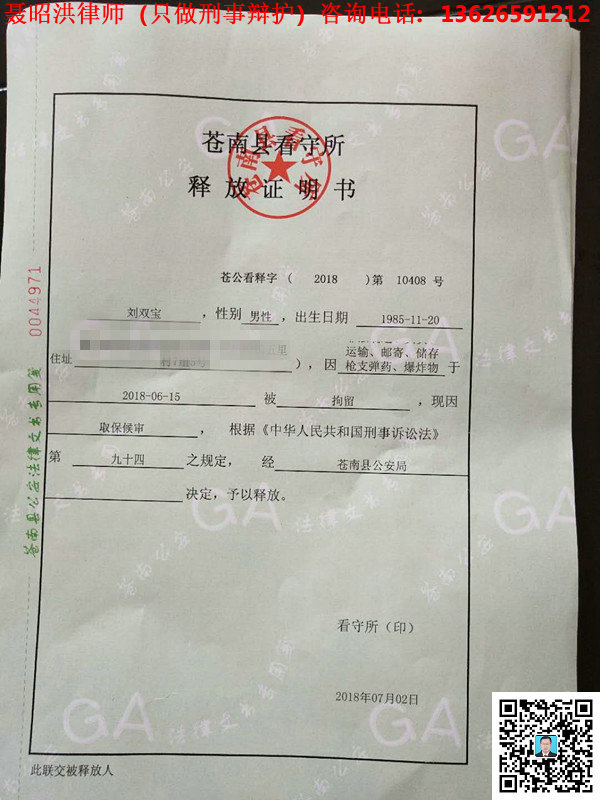 聂昭洪律师（只做刑事辩护）咨询电话：13626591212
苍南县看守所
释放证明书
苍公看释字（ 2018 ）第 10408 号
刘双宝 ，性别 男性 ，出生日期 1985-11-20
五里
住址 村7 5号 ），因 运输、邮寄、储存
枪支弹药、爆炸物 于
2018-06-15 被 拘留 ，现因
取保候审 ，根据《中华人民共和国刑事诉讼法》
第 九十四 之规定，经 苍南县公安局
决定，予以释放。
看守所（印）
2018年07月02日
此联交被释放人
0044971
苍南县公安法律文书专用笺
苍南县看守所
GA
法律文书专用笺
苍南公安